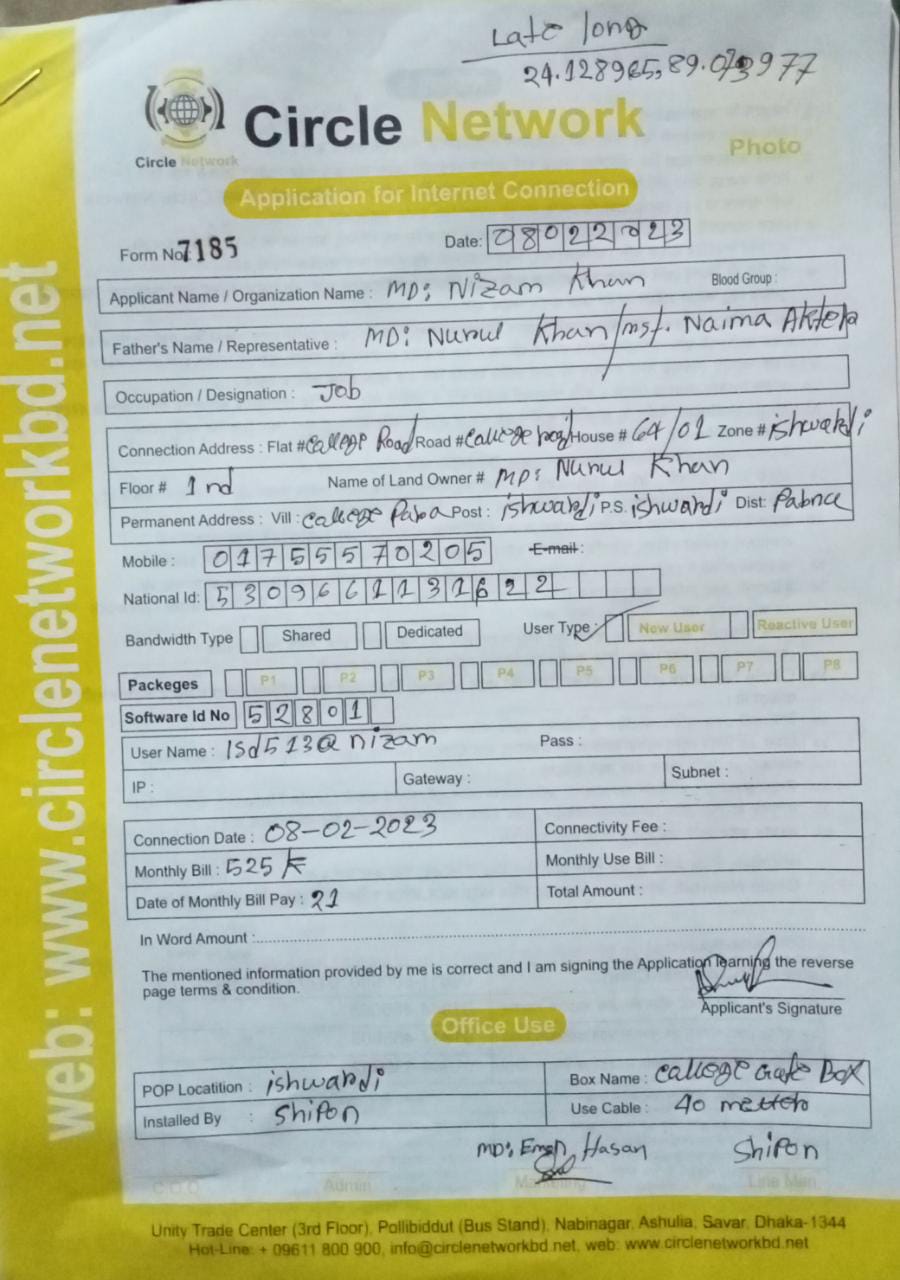 Late long
24.128965, 89.073977
Circle Network
Circle Network
Photo
Application for Internet Connection
Form No 7185 Date: 08022023
Applicant Name / Organization Name : MD: Nizam Khan Blood Group :
Father's Name / Representative : MD: Nurul Khan/mst. Naima Aktera
Occupation / Designation : Job
Connection Address : Flat # College Road Road # College road House # 64/01 Zone # ishwardi
Floor # 1nd Name of Land Owner # MD: Nurul Khan
Permanent Address : Vill : College Para Post : ishwardi P.S. ishwardi Dist: Pabna
Mobile : 01755570205 E-mail :
National Id: 5309661131622
Bandwidth Type Shared Dedicated User Type : New User Reactive User
Packeges P1 P2 P3 P4 P5 P6 P7 P8
Software Id No 52801
User Name : ISd513@nizam Pass :
IP : Gateway : Subnet :
Connection Date : 08-02-2023 Connectivity Fee :
Monthly Bill : 525 Monthly Use Bill :
Date of Monthly Bill Pay : 21 Total Amount :
In Word Amount :
The mentioned information provided by me is correct and I am signing the Application learning the reverse
page terms & condition.
Applicant's Signature
Office Use
POP Locatition : ishwardi Box Name : College Gate Box
Installed By : Shipon Use Cable : 40 metter
MD: Hasan Shipon
C.O.O Admin Marketing Line Man
Unity Trade Center (3rd Floor), Pollibiddut (Bus Stand), Nabinagar, Ashulia, Savar, Dhaka-1344
Hot-Line: + 09611 800 900, info@circlenetworkbd.net, web: www.circlenetworkbd.net
web: www.circlenetworkbd.net